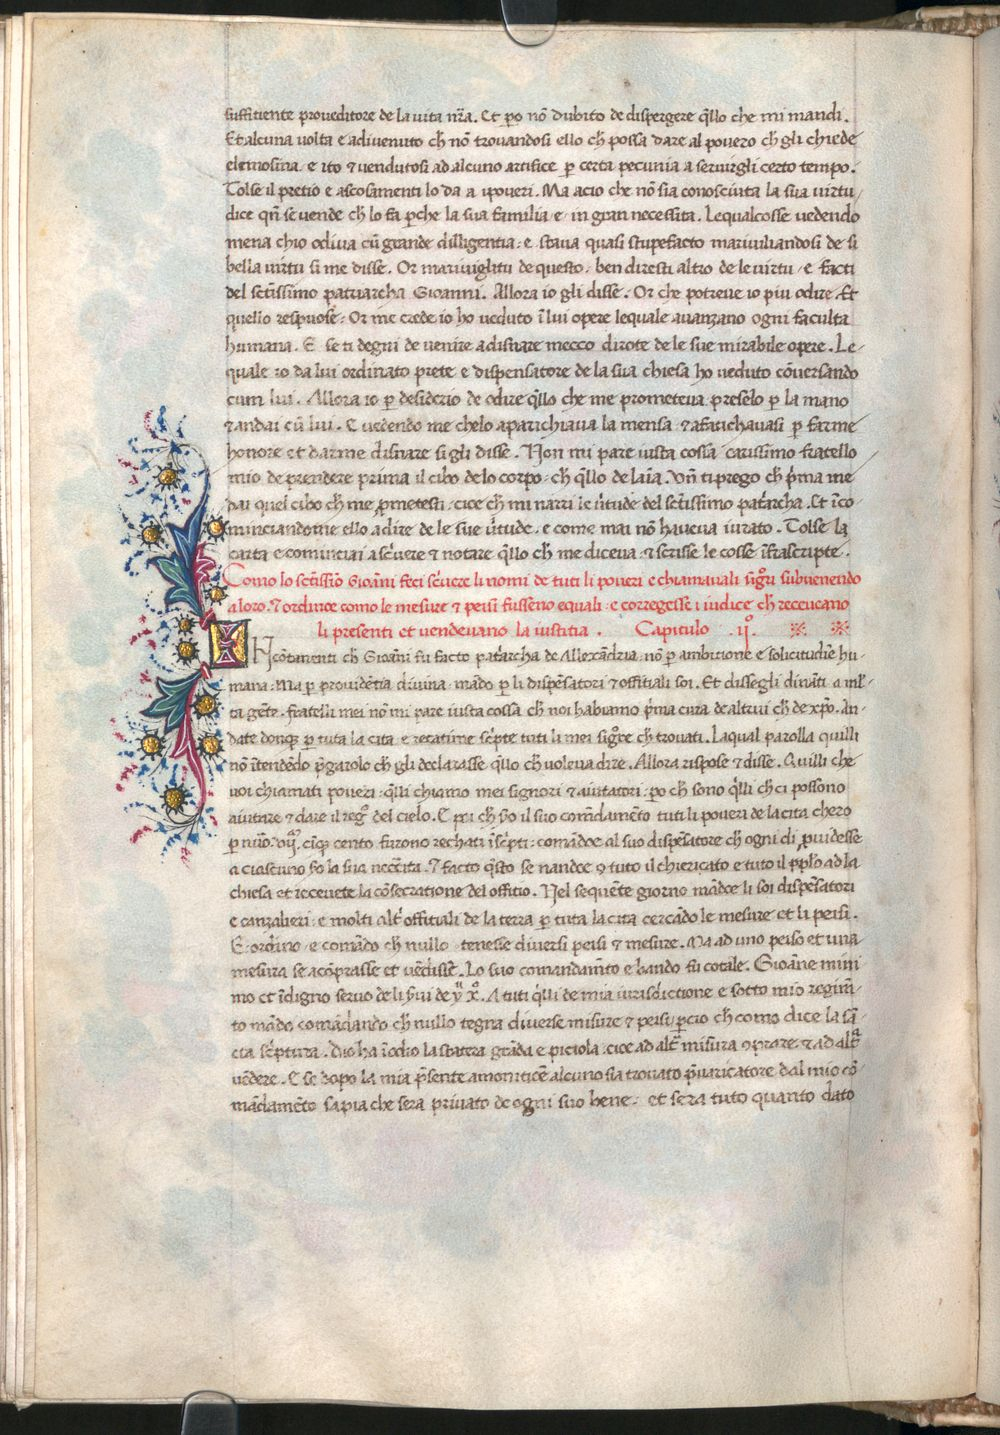 suffitiente proveditore de la vita nr̃a. Et ꝑo nõ dubito de dispergere q̃llo che mi mandi.
Et alcuna volta e adivenuto ch̃ nõ trovandosi ello ch̃ possa dare al povero ch̃ gli chiede
elemosina. e ito & vendutosi ad alcuno artifice ꝑ certa pecunia a servirgli certo tempo.
Tolse il pretio e ascosamenti lo da a i poveri. Ma acio che nõ sia conosciuta la sua virtu/
dice qñ se vende ch̃ lo fa ꝑche la sua familia e in gran necessita. Lequalcosse vedendo
mena chio odiva cũ grande dilligentia. e stava quasi stupefacto mariviliandosi de si
bella virtu si me disse. Or maraviglitu de questo. ben diresti altro de le virtu. e facti
del sctissimo patriarcha Gioanni. Allora io gli disse. Or che potreve io piu odire. Et
quello respuose. Or me crede io ho veduto ĩ lui opere lequale avanzano ogni faculta
humana. E se ti degni de venire a disnare mecco dirote de le sue mirabile opere. Le-
quale io da lui ordinato prete e dispensatore de la sua chiesa ho veduto cõversando
cum lui. Allora io ꝑ desiderio de odire q̃llo che me prometeva. preselo ꝑ la mano
& andai cũ lui. E vedendo me chelo aparichiava la mensa. & afatichavasi ꝑ farme
honore et darme disnare si gli disse. Non mi pare iusta cossa carissimo fratello
mio de prendere prima il cibo de lo corpo. ch̃ q̃llo de laĩa. Vñ ti prego ch̃ p̃ma me
dai quel cibo ch̃ me ꝓmetesti. cioe ch̃ mi narri le ṽtude del sctissimo pat̃archa. Et ĩco-
minciandome ello a dire de le sue ṽtude. e come mai nõ haveva iurato. Tolse la
carta e cominciai a sc̃vere & notare q̃llo ch̃ me diceva. & scrisse le cosse ĩfrascripte.
Como lo sctissĩo Gioãni feci sc̃vere li nomi de tuti li poveri e chiamavali sig̃ri subvenendo
a loro. & ordinoe como le mesure & peisi fusseno equali. e corregesse i iudice ch̃ recevēano
li presenti et vendevano la iustitia. Capitulo .ijº.
INcõtinenti ch̃ Gioãni fu facto pat̃archa de Allexãdria. nõ ꝑ ambitione e solicitudĩe hu-
mana. Ma ꝑ providẽtia divina. mãdo ꝑ li dispẽsatori & offitiali soi. Et dissegli dinãti a ml̃-
ta gẽte. fratelli mei nõ mi pare iusta cossa ch̃ noi habiamo p̃ma cura de altrui ch̃ de xp̃o. An-
date donq̃ ꝑ tuta la cita. e recatime sc̃pte tuti li mei sig̃re ch̃ trovati. Laqual parolla quilli
nõ ĩtendẽdo p̃garolo ch̃ gli declarasse q̃llo ch̃ voleva dire. Allora rispose & disse. Quilli che
voi chiamati poveri. q̃lli chiamo mei signori & aiutatori. ꝑo ch̃ sono q̃lli ch̃ ci possono
aiutare & dare il reg̃ del cielo. E poi ch̃ il suo comãdamẽto tuti li poveri de la cita chero
cinq̃ cento furono rechati ĩsc̃pti. comãdoe al suo dispẽsatore ch̃ ogni di ꝓvidesse
a ciascuno la sua necc̃ita. & facto q̃sto se nandoe tuto il chiericato e tuto il pp̃lo ad la
chiesa et recevete la cõsecratione del offitio. Nel sequẽte giorno mãdoe li soi dispẽsatori
e canzalieri. e molti alt̃ offitiali de la terra ꝑ tuta la cita cercãdo le mesure et li peisi.
E ordino e comãdo ch̃ nullo tenesse diversi peisi & mesure. Ma ad uno peiso et una
mesura se acõprasse et vẽdisse. Lo suo comandamẽto e bando fu cotale. Gioãne mini-
mo et ĩdigno servo de li s̃vi de A tuti q̃lli de mia iurisdictione e sotto mio regimẽ-
to mãdo comãdando ch̃ nullo tegna diverse misure & peisi. ꝑcio ch̃ como dice la sã-
cta sc̃ptura. Dio ha ĩ odio la statera grãda e piciola. cioe ad alt̃ misura cõprare. & ad alt̃a
vẽdere. E se dopo la mia p̃sente amonitiõe alcuno sia trovato p̃varicatore dal mio cõ-
mãdamẽto sapia che sera privato de ogni suo bene. et sera tuto quanto dato